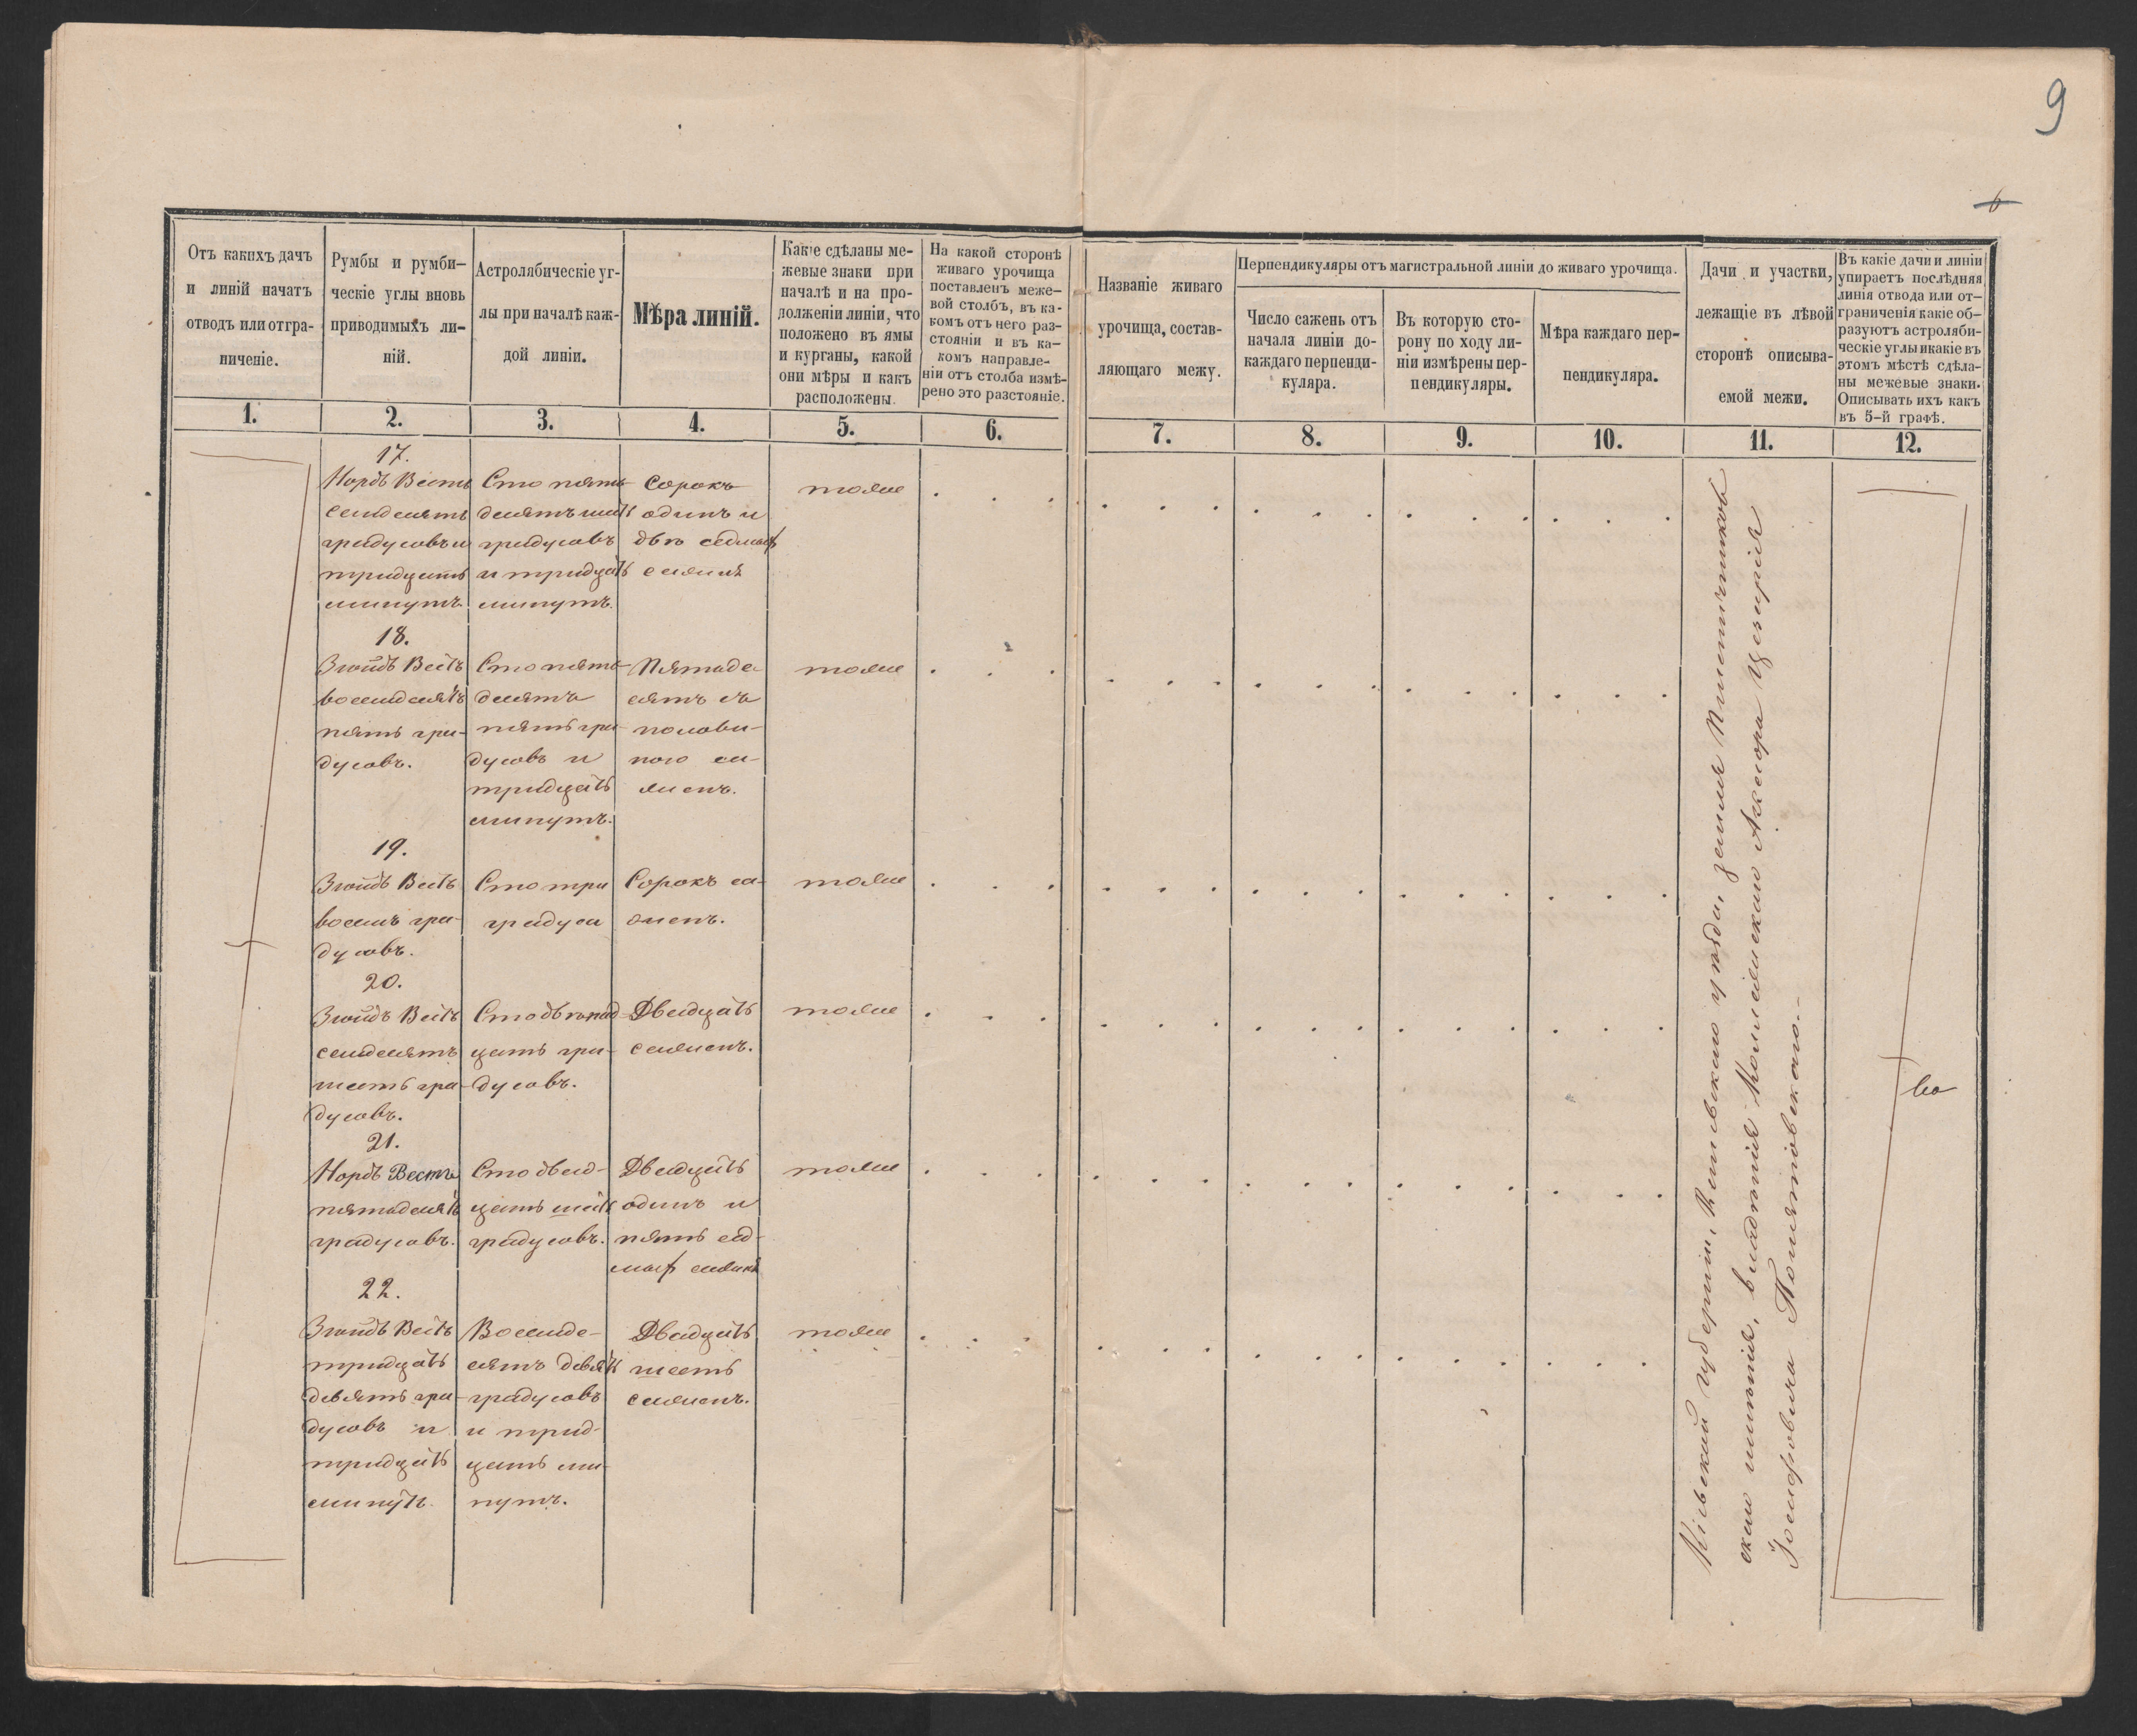 9
6
Отъ какихъ дачъ
и линій начатъ
отводъ или отгра-
ниченіе.
Румбы и румби-
ческіе углы вновь
приводимыхъ ли-
ній.
Астролябическіе уг-
лы при началѣ каж-
дой линіи.
Мѣра линій.
Какіе сдѣланы ме-
жевые знаки при
началѣ и на про-
долженіи линіи, что
положено въ ямы
и курганы, какой
они мѣры и какъ
расположены.
На какой сторонѣ
живаго урочища
поставленъ меже-
вой столбъ, въ ка-
комъ отъ него раз-
стояніи и въ ка-
комъ направле-
ніи отъ столба измѣ-
рено это разстояніе.
Названіе живаго
урочища, состав-
ляющаго межу.
Перпендикуляры отъ магистральной линіи до живаго урочища.
Число сажень отъ
начала линіи до-
каждаго перпенди-
куляра.
Въ которую сто-
рону по ходу ли-
ніи измѣрены пер-
пендикуляры.
Мѣра каждаго пер-
пендикуляра.
Дачи и участки,
лежащіе въ лѣвой
сторонѣ описыва-
емой межи.
Въ какіе дачи и линіи
упираетъ послѣдняя
линія отвода или от-
граниченія какіе об-
разуютъ астроляби-
ческіе углы и какіе въ
этомъ мѣстѣ сдѣла-
ны межевые знаки.
Описывать ихъ какъ
въ 5-й графѣ.
1. 2. 3. 4. 5. 6. 7. 8. 9. 10. 11. 12.
17.
Нордъ Вестъ
семдесятъ
градусовъ и
тридцать
минутъ.
Сто пять-
десятъ шесть
градусовъ
и тридцать
минутъ.
Сорокъ
одинъ и
двѣ седмыхъ
сажня
тоже
18.
Зюйдъ Вестъ
восемдесятъ
пять гра-
дусовъ.
Сто пять-
десятъ
пять гра-
дусовъ и
тридцать
минутъ.
Пятьде-
сятъ съ
полови-
ною са-
женъ.
тоже
19.
Зюйдъ Вестъ
восемь гра-
дусовъ.
Сто три
градуса
Сорокъ са-
женъ.
тоже
20.
Зюйдъ Вестъ
семдесятъ
шесть гра-
дусовъ.
Сто двѣнад-
цать гра-
дусовъ.
Двадцать
саженъ.
тоже
21.
Нордъ Вестъ
пятьдесятъ
градусовъ.
Сто двад-
цать шесть
градусовъ.
Двадцать
одинъ и
пять сед-
мыхъ сажня
тоже
22.
Зюйдъ Вестъ
тридцать
девять гра-
дусовъ и
тридцать
минутъ.
Восемде-
сятъ девять
градусовъ
и трид-
цать ми-
нутъ.
Двадцать
шесть
саженъ.
тоже
Кіевской губерніи, уѣзда, земля
скаго имѣнія, владѣнія Коллежскаго Асесора Цезарія
Іосифовича Понятовскаго.-
во